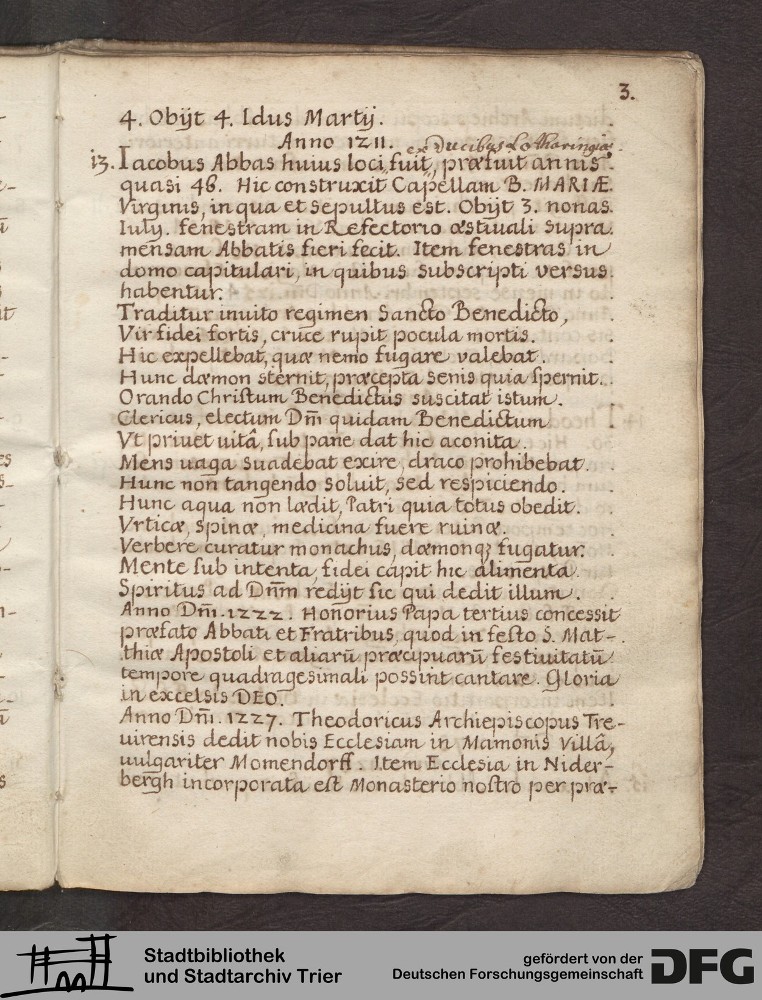 3.
4. Obijt 4. Idus Martij.
Anno 1211.
ex Ducibus Lotharingiæ.
13. Iacobus Abbas huius loci fuit, præfuit annis
quasi 46. Hic construxit Capellam B. MARIÆ
Virginis, in qua et sepultus est. Obijt 3. nonas
Iulij. fenestram in Refectorio æstiuali supra
mensam Abbatis fieri fecit. Item fenestras in
domo capitulari, in quibus subscripti versus
habentur.
Traditur inuito regimen Sancto Benedicto,
Vir fidei fortis, cruce rupit pocula mortis.
Hic expellebat, quæ nemo fugare valebat.
Hunc dæmon sternit, præcepta senis quia spernit.
Orando Christum Benedictus suscitat istum.
Clericus, electum Dm̄ quidam Benedictum
Vt priuet uitâ, sub pane dat hic aconita.
Mens uaga suadebat exire, draco prohibebat.
Hunc non tangendo soluit, sed respiciendo.
Hunc aqua non lædit, Patri quia totus obedit.
Vrticæ, spinæ, medicina fuere ruinæ.
Verbere curatur monachus, dæmonq; fugatur.
Mente sub intenta, fidei capit hic alimenta.
Spiritus ad Dnm̄ redijt sic qui dedit illum.
Anno Dm̄. 1222. Honorius Papa tertius concessit
præfato Abbati et Fratribus, quod in festo S. Mat-
thiæ Apostoli et aliarū præcipuarū festiuitatū
tempore quadragesimali possint cantare. Gloria
in excelsis DEO.
Anno Dm̄. 1227. Theodoricus Archiepiscopus Tre-
uirensis dedit nobis Ecclesiam in Mamonis Villâ,
uulgariter Momendorff. Item Ecclesia in Nider-
bergh incorporata est Monasterio nostro per præ-
Stadtbibliothek
und Stadtarchiv Trier
gefördert von der
Deutschen Forschungsgemeinschaft
DFG